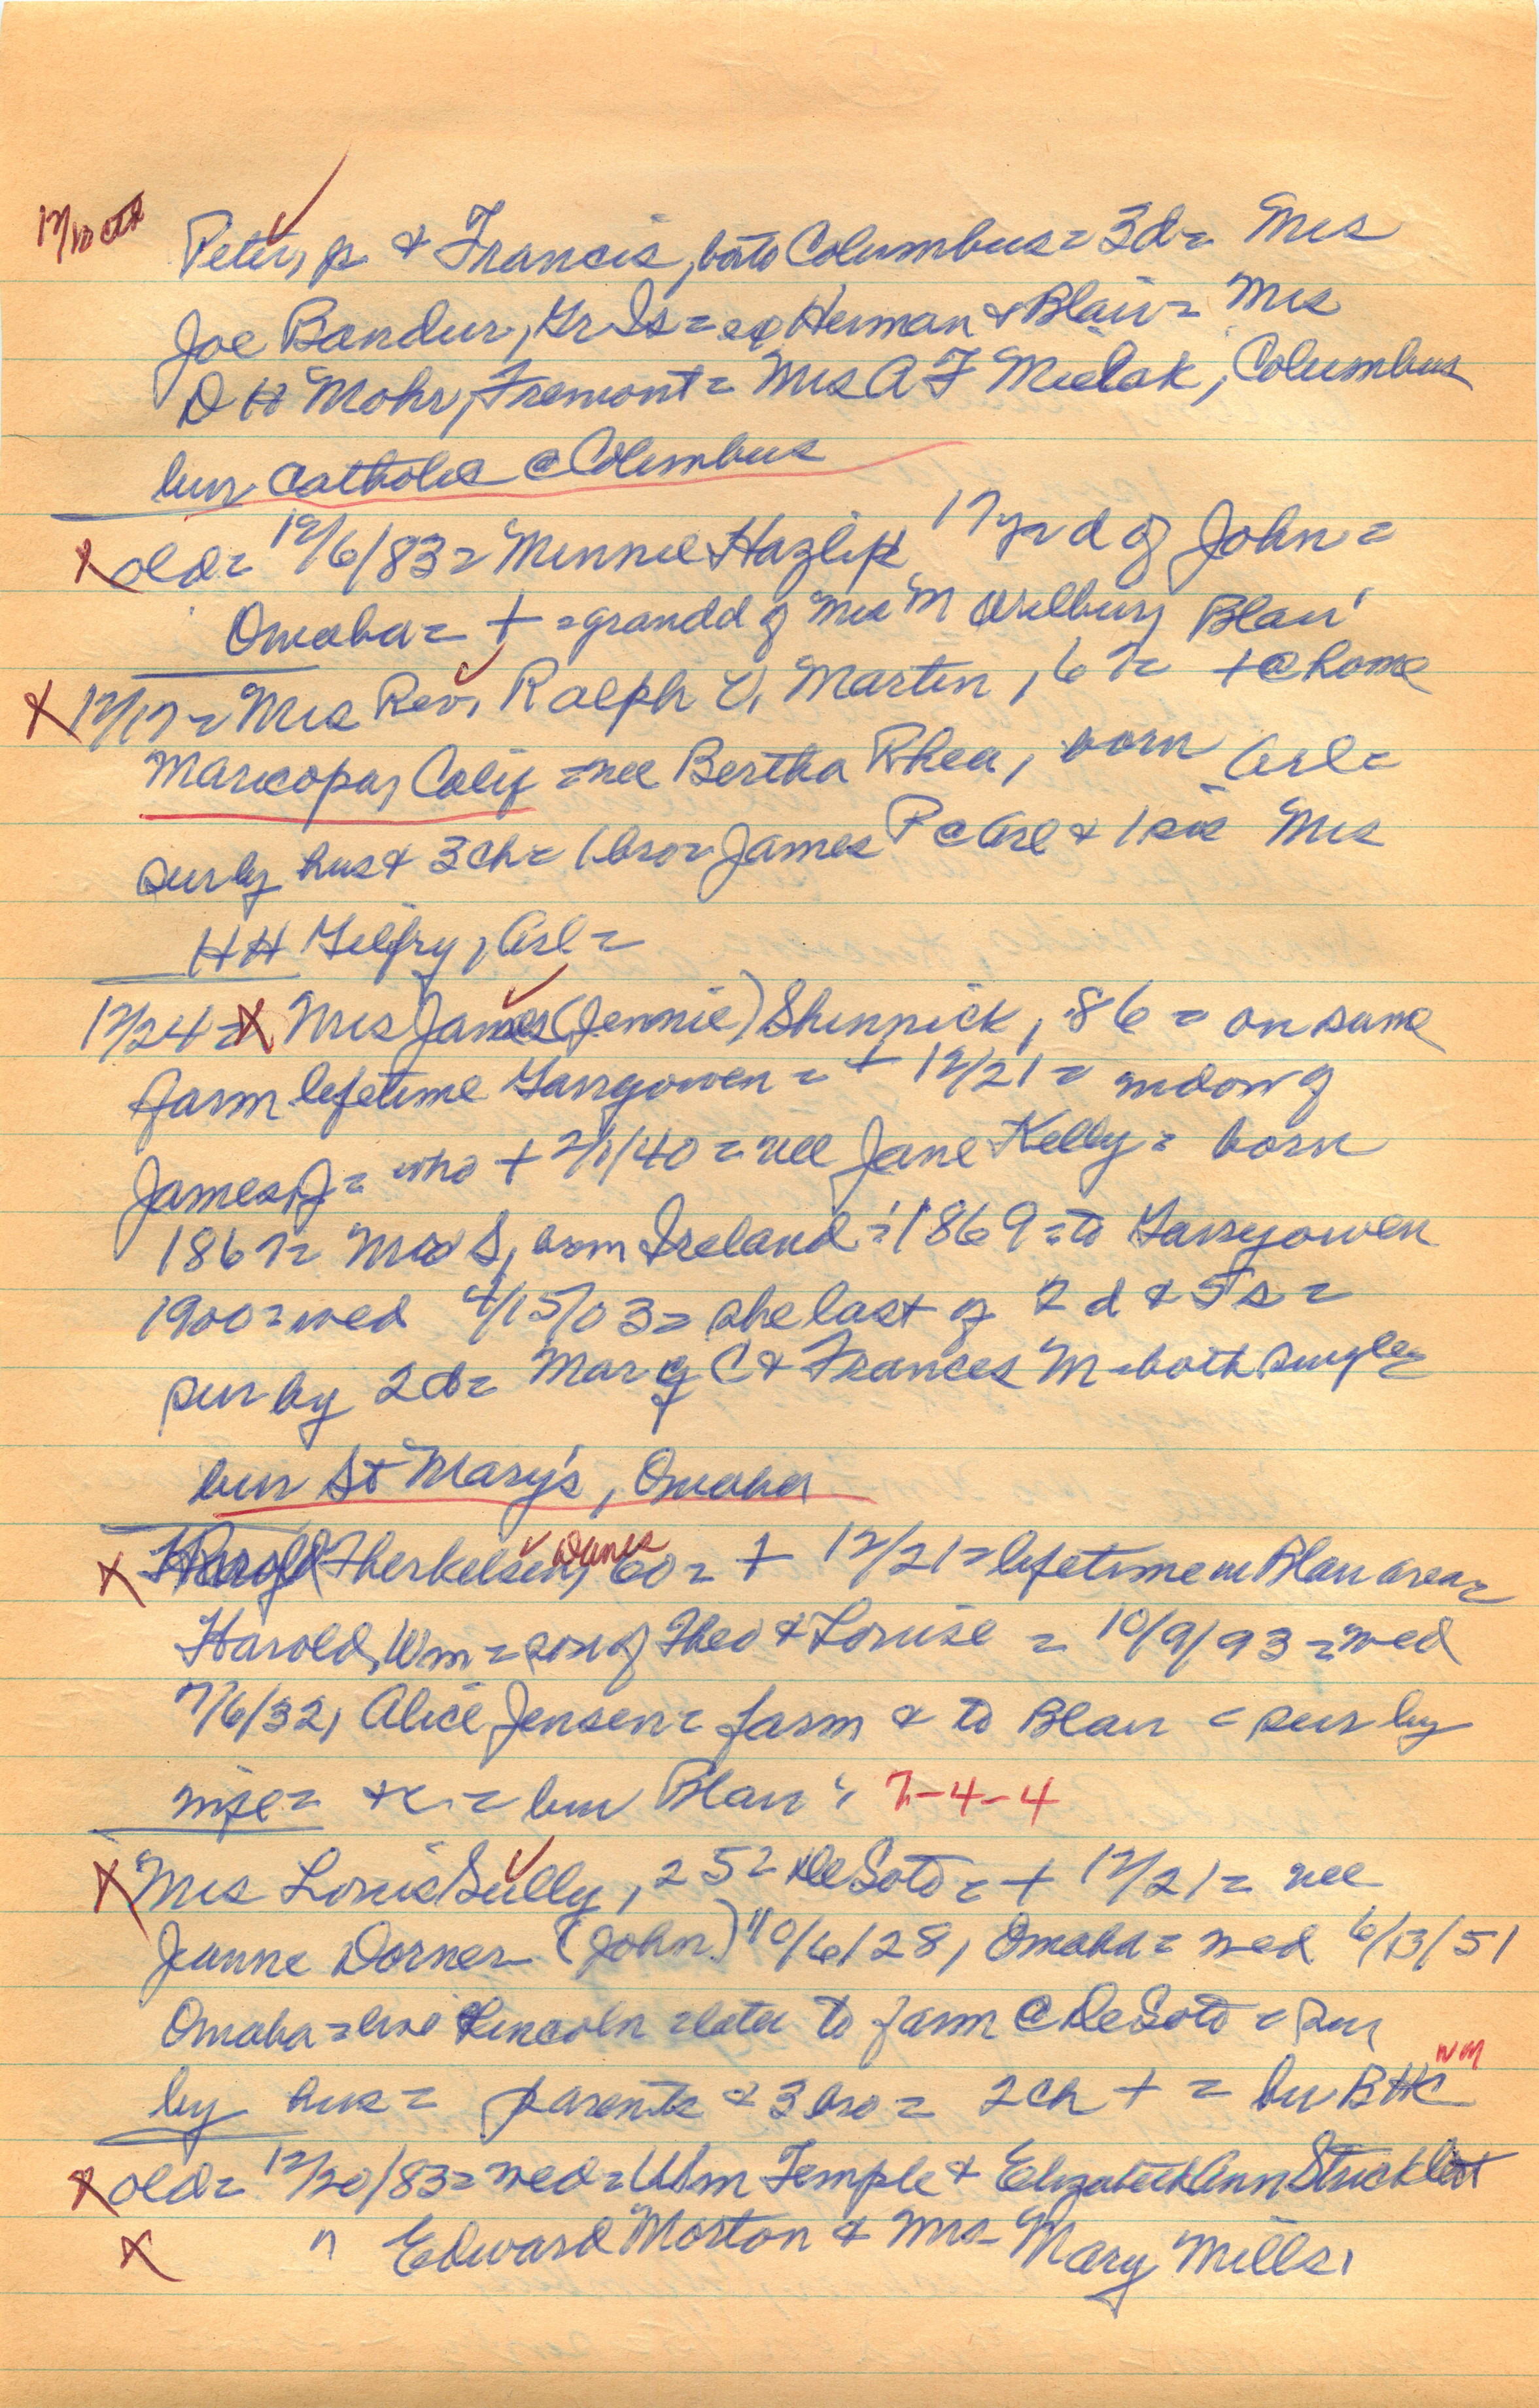 12/10 ctd
Peter, jr & Francis, both Columbus = 3d = Mrs
Joe Bandur, Gr Is = Herman & Blair = Mrs
D H Mohr, Fremont = Mrs A F Mielak, Columbus
bur Catholic @ Columbus
X old = 12/6/83 = Minnie Hazlip 17 yr d of John =
Omaha = + = grandd of Mrs M Wilbur, Blair
X 12/17 = Mrs Rev. Ralph V. Martin, 67 = + @ home
Maricopa, Calif = nee Bertha Rhea, born Arl =
sur by hus & 3 ch = 1 bro = James R @ Arl & 1 sis Mrs
HH Gilfry, Arl =
12/24 = X Mrs James (Jennie) Shinnick, 86 = on same
farm lifetime Garryowen = + 12/21 = widow of
James J = who + 2/1/40 = nee Jane Kelly = born
1867 = Mr S, born Ireland = 1869 = to Garryowen
1900 = wed 4/15/03 = she last of 2 d & 5 s =
sur by 2 d = Marg C & Frances M = both single =
bur St Mary's, Omaha
X Harold Therkelsen, Danes 60 = + 12/21 = lifetime in Blair area =
Harold, Wm = son of Theo & Louise = 10/9/93 = wed
7/6/32, Alice Jensen = farm & to Blair = sur by
wife = = bur Blair 7-4-4
X Mrs Louis Sully, 25 = DeSoto = + 12/21 = nee
Jeanne Dorner (John) 10/6/28, Omaha = wed 6/13/51
Omaha = live Lincoln = later to farm @ DeSoto = sur
by hus = parents & 3 bro = 2 ch + = bu B
X old = 12/20/83 = wed = Wm Temple & Elizabeth Ann Stricklett
X " Edward Morton & Mrs Mary Mills,